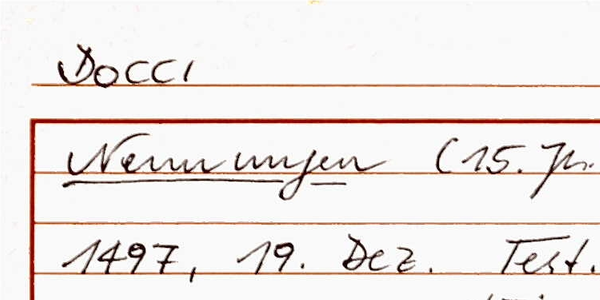 DOCCI
Nennungen (15. Jh.
1497, 19. Dez. Test.